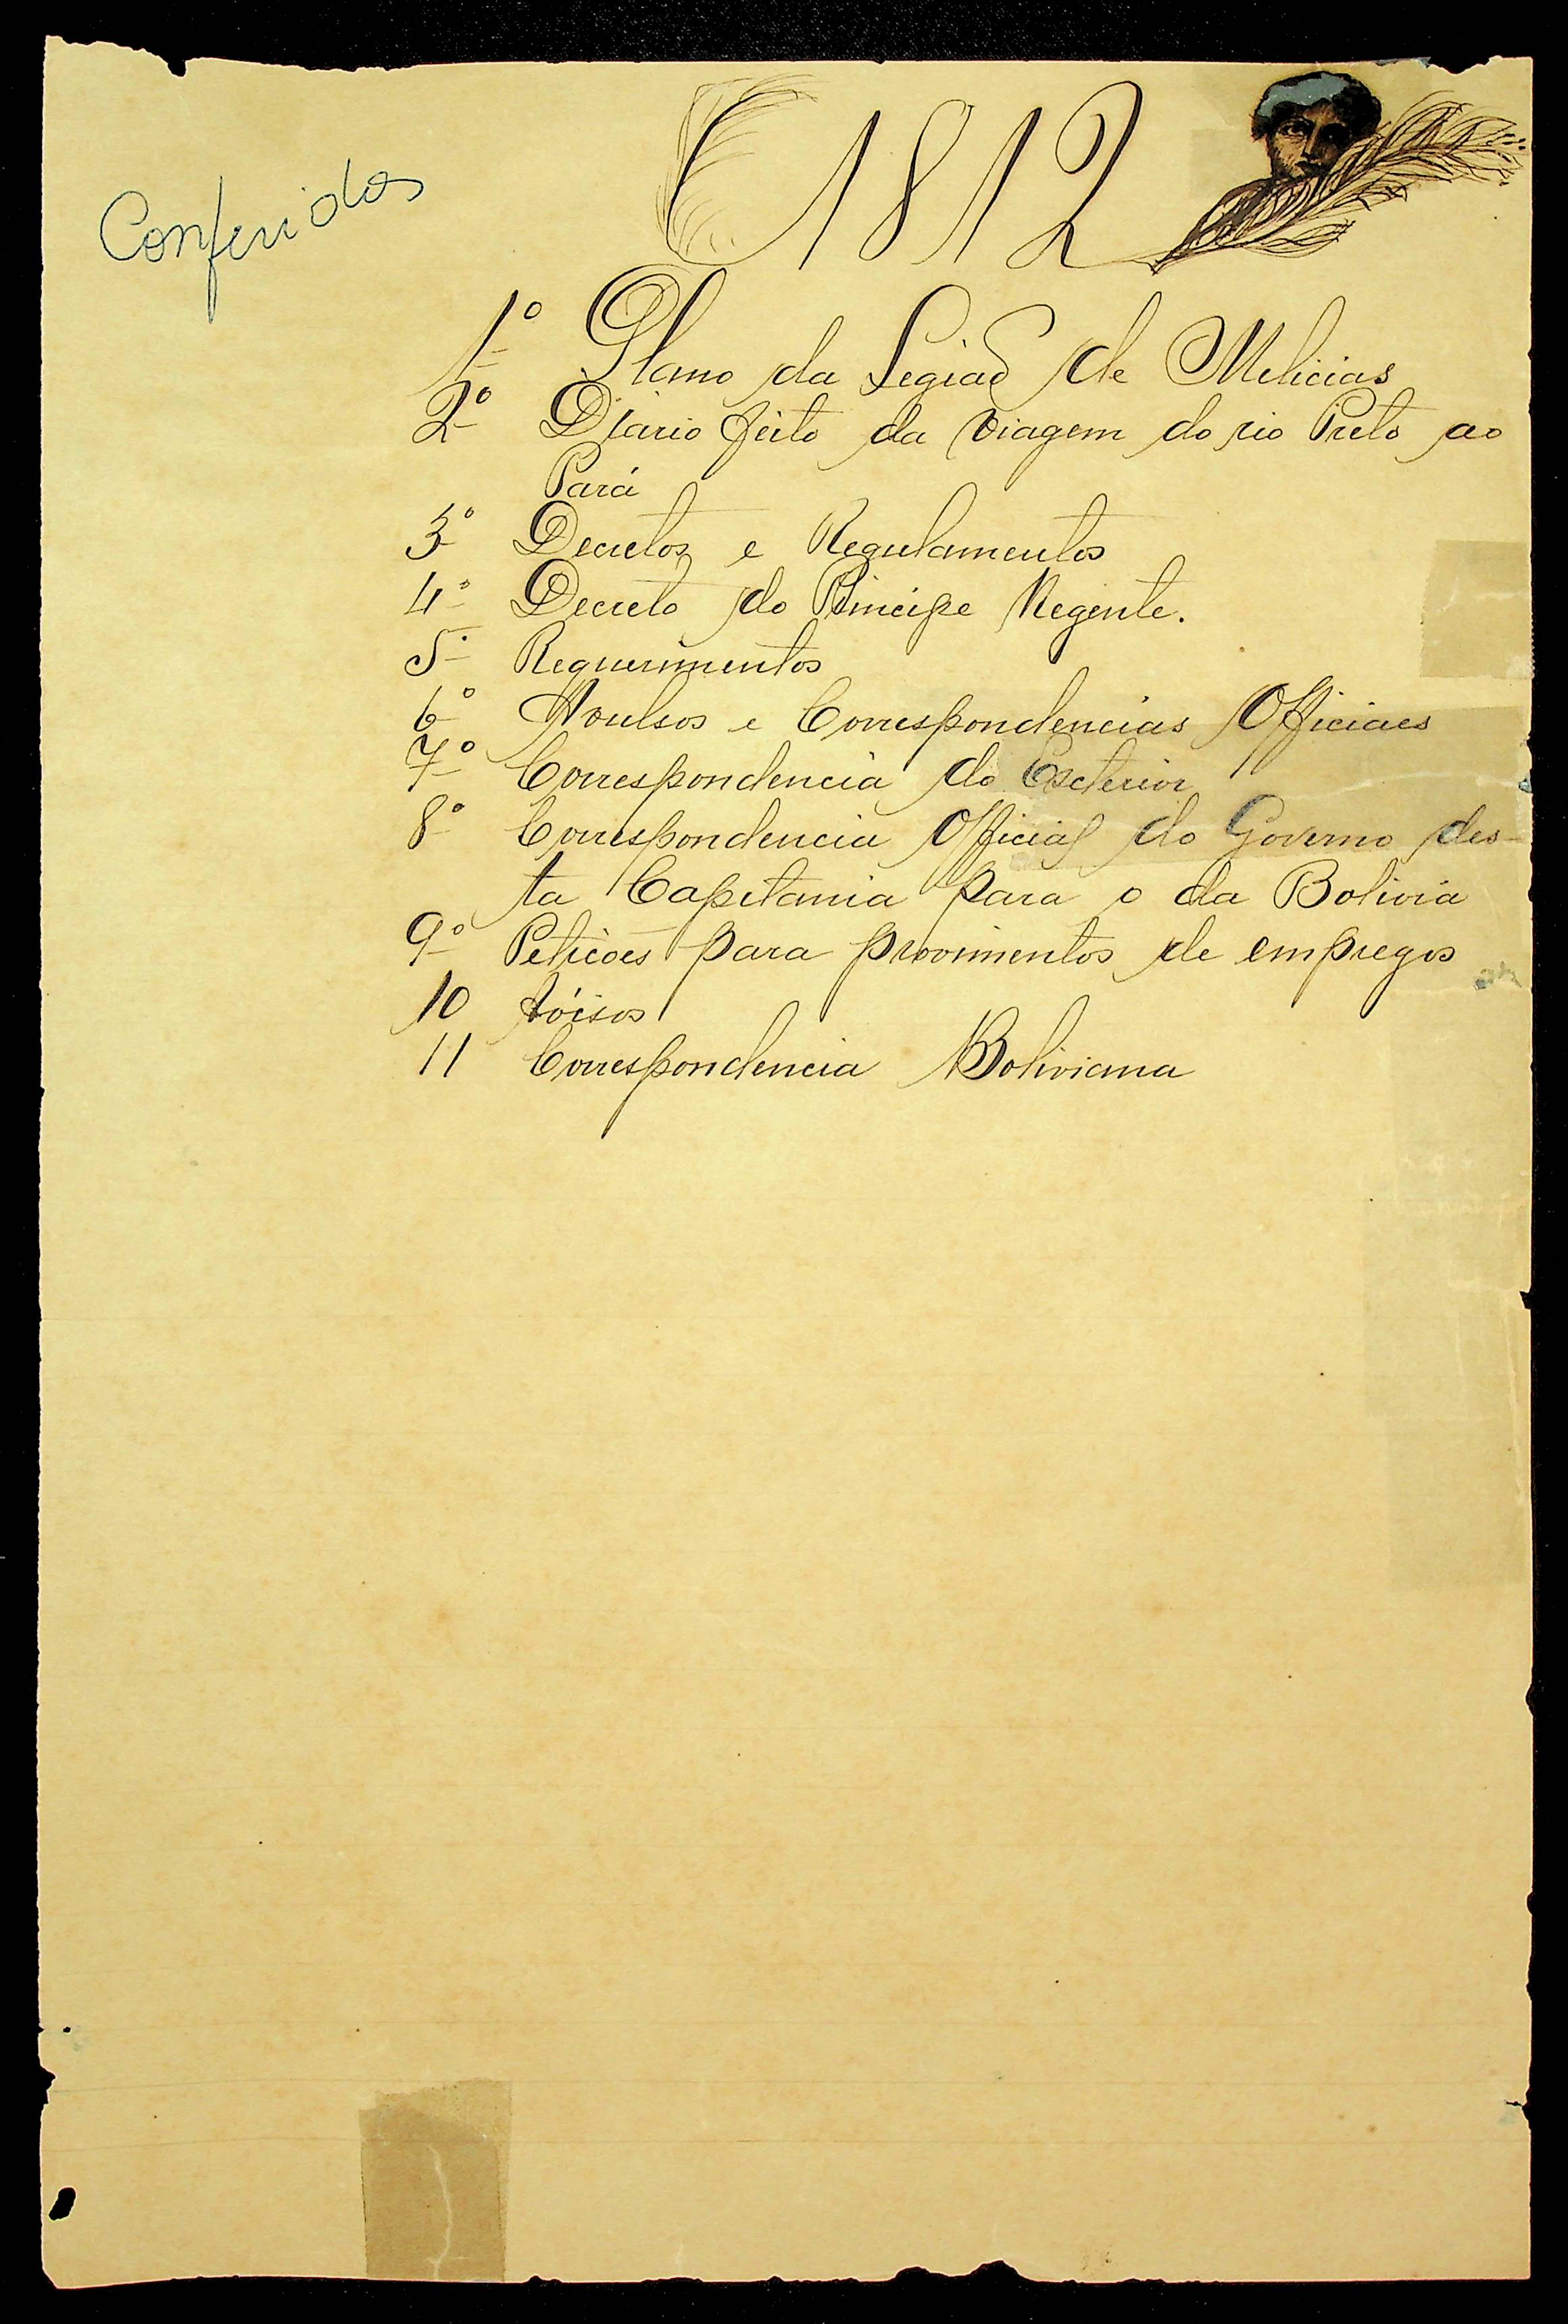 1812
Conferidos
1º Plano da Legiaõ de Melicias
2º Diario feito da viagem do rio Preto ao
Pará
3º Decretos e Regulamentos
4º Decreto do Principe Regente.
5º Requerimentos
6º Avulsos e Correspondencias Officiaes
7º Correspondencia do Exterior
8º Correspondencia Official do Governo des-
ta Capitania para o da Bolivia
9º Peticões para provimentos de empregos
10 Avisos
11 Correspondencia Boliviana